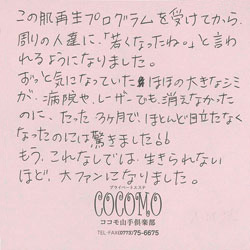 この肌再生プログラムを受けてから、
周りの人達に、「若くなったね。」と言わ
れるようになりました。
ずっと気になっていたほほの大きなシミ
が、病院や、レーザーでも、消えなかった
のに、たった3ヶ月で、ほとんど目立たなく
なったのには驚きました!!
もう、これなしでは、生きられない
ほど、大ファンになりました。
プライベートエステ
COCOMO
ココモ山手倶楽部
TEL・FAX(0773)75-6675